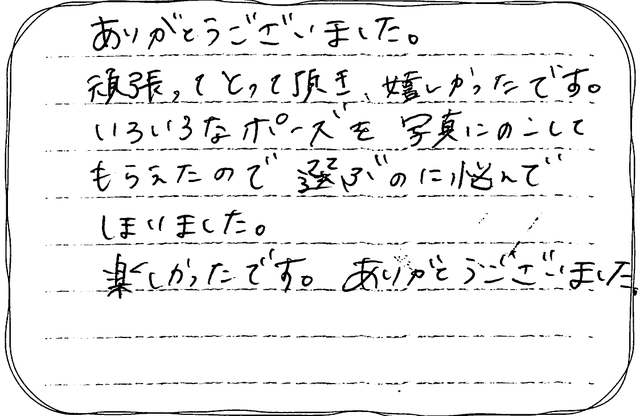 ありがとうございました。
頑張ってとって頂き、嬉しかったです。
いろいろなポーズを写真にのこして
もらえたので選ぶのに悩んで
しまいました。
楽しかったです。ありがとうございました。